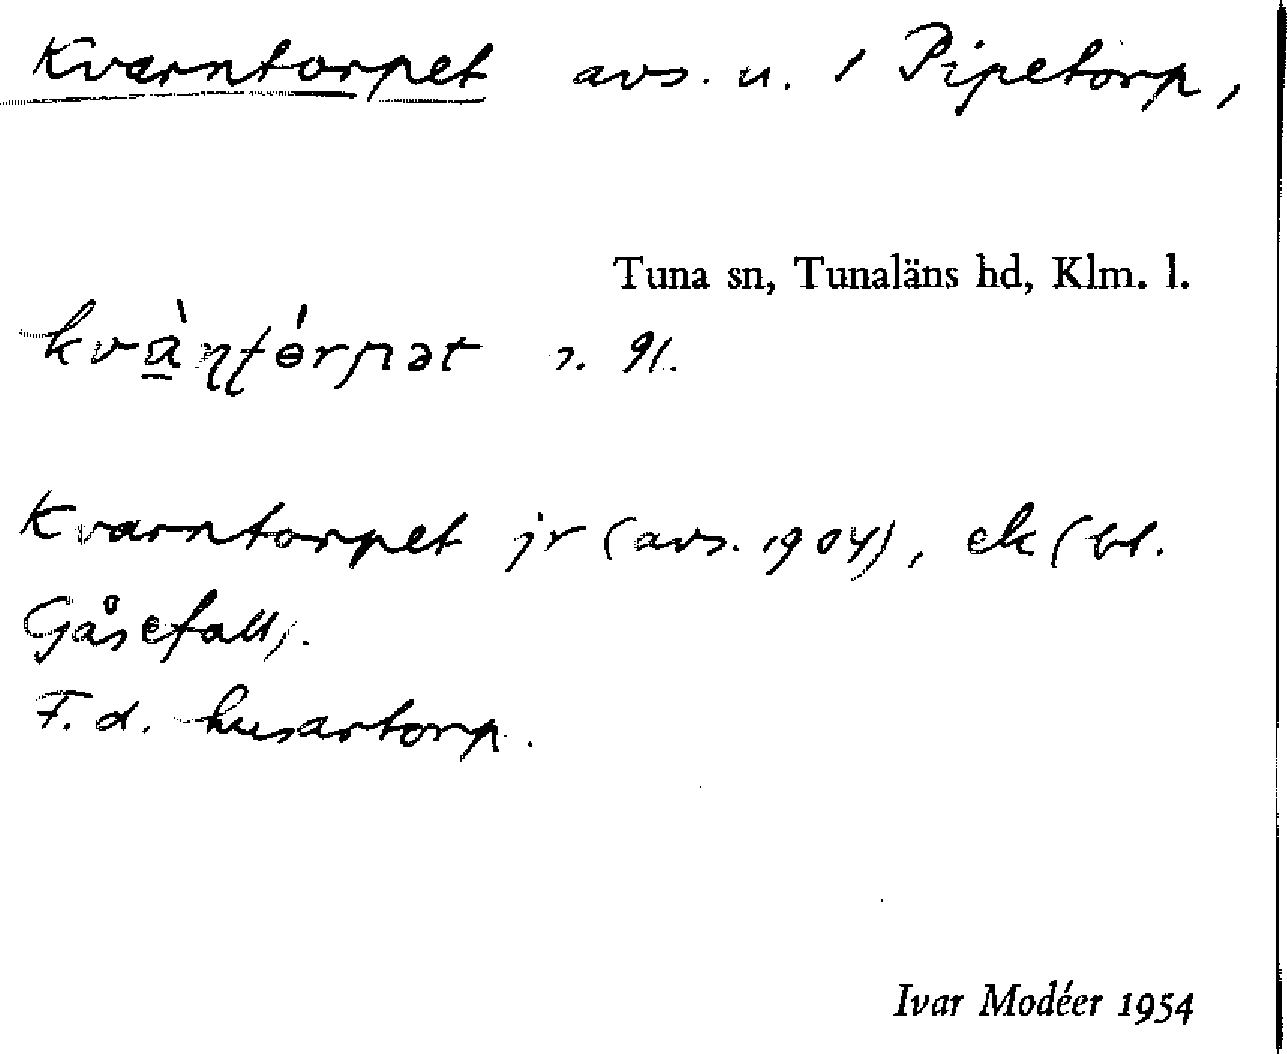 Kvarntorpet avs. u. 1 Pipetorp,
Tuna sn, Tunaläns hd, Klm. l.
kvа̀ɳʈórpət s. 91.
Kvarntorpet jr (avs. 1904), ek (bl.
Gåsefall).
F. d. husartorp.
Ivar Modéer 1954